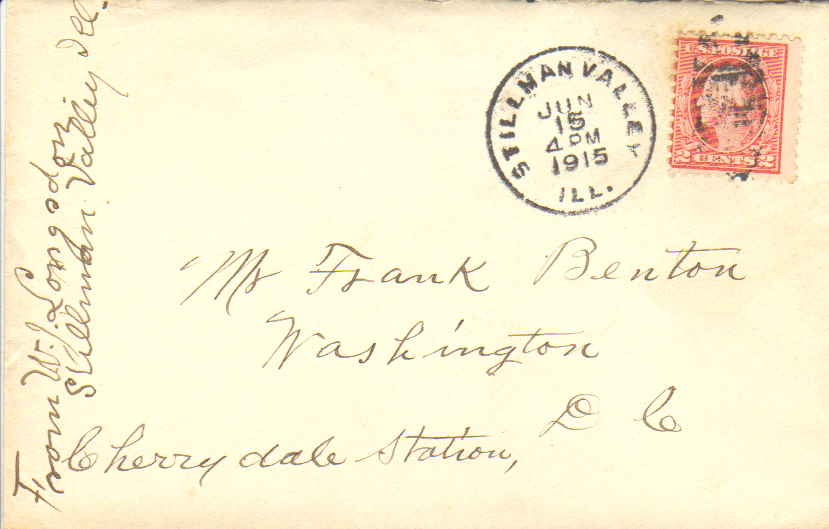 From W. J. Longsdon
Stillman Valley Ill.
STILLMAN VALLEY
JUN
15
4 PM
1915
ILL.
U.S. POSTAGE
2 CENTS 2
Mr Frank Benton
Washington
D C
Cherrydale Station,